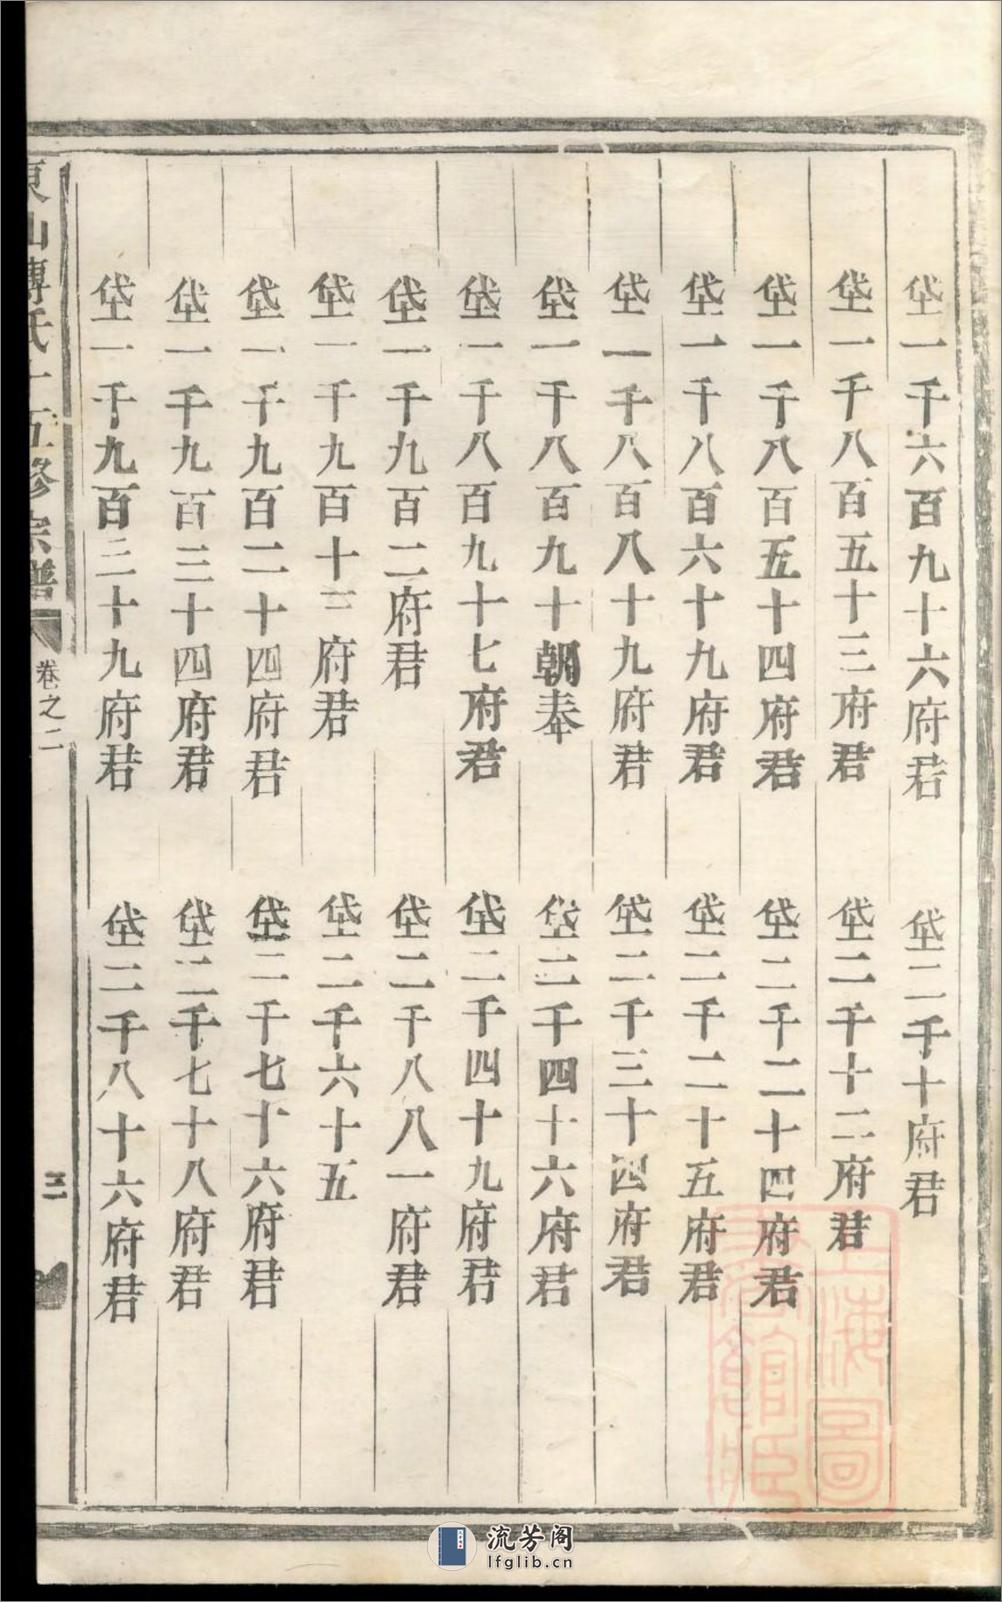 垈一千六百九十六府君　垈二千十府君
垈一千八百五十三府君　垈二千十二府君
垈一千八百五十四府君　垈二千二十四府君
垈一千八百六十九府君　垈二千二十五府君
垈一千八百八十九府君　垈二千三十四府君
垈一千八百九十朝奉　垈二千四十六府君
垈一千八百九十七府君　垈二千四十九府君
垈一千九百二府君　垈二千八八一府君
垈一千九百十三府君　垈二千六十五
垈一千九百二十四府君　垈二千七十六府君
垈一千九百三十四府君　垈二千七十八府君
垈一千九百三十九府君　垈二千八十六府君
東山傅氏十五修宗譜
卷之二
三
上海圖書館藏
流芳阁
lfglib.cn